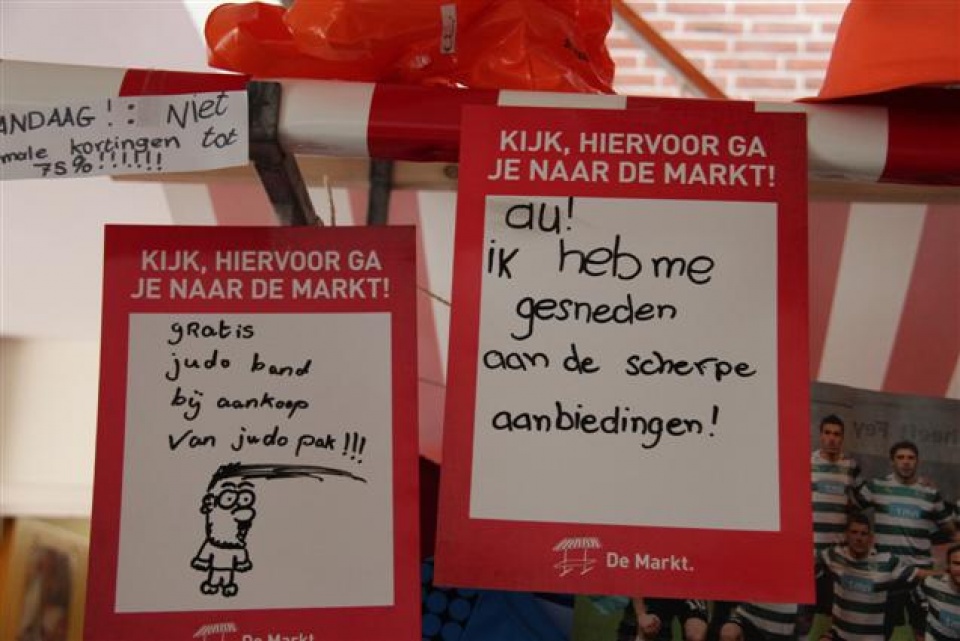 ANDAAG!: Niet
male kortingen tot
75%!!!!!!!
KIJK, HIERVOOR GA
JE NAAR DE MARKT!
gRatis
judo band
bij aankoop
Van judo pak!!!
De Markt.
KIJK, HIERVOOR GA
JE NAAR DE MARKT!
au!
ik heb me
gesneden
aan de scherpe
aanbiedingen!
De Markt.